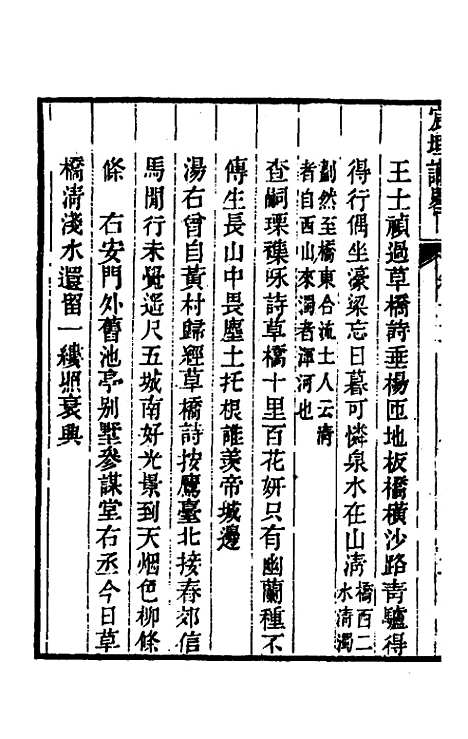 王士禎過草橋詩垂楊匝地板橋橫沙路靑驢得
得行偶坐濠梁忘日暮可憐泉水在山淸橋百二水淸濁
劃然至橋東合流土人云淸者自西山來濁者渾河也
查嗣瑮襍咏詩草橋十里百花妍只有幽蘭種不
傳生長山中畏塵土托根誰羨帝城邊
湯右曾自黃村歸經草橋詩按鷹臺北接春郊信
馬閒行未覺遙尺五城南好光景到天烟色柳條
條　右安門外舊池亭別墅參謀堂右丞今日草
橋淸淺水還留一綫照衰興
宸垣識畧